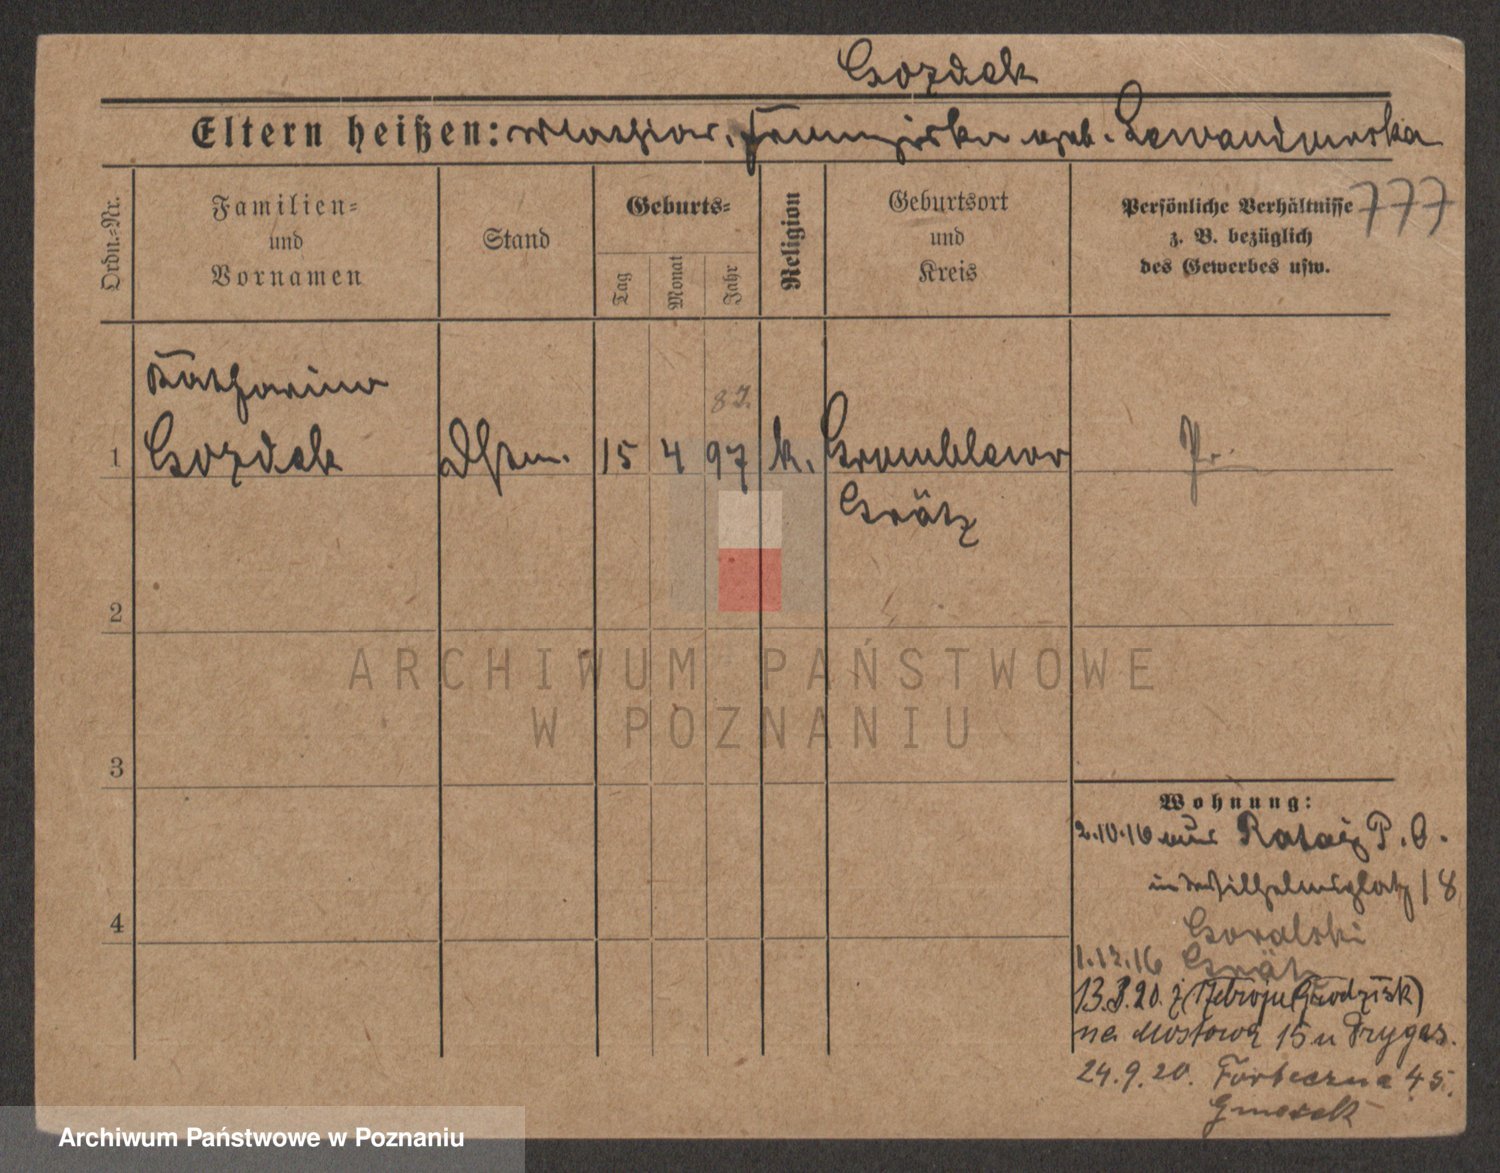 Gozdek
Eltern heißen: Mathias, Franziska geb. Lewandowska
Ordn.=Nr.
Familien=
und
Vornamen
Stand
Geburts=
Tag
Monat
Jahr
Religion
Geburtsort
und
Kreis
Persönliche Verhältnisse
z. B. bezüglich
des Gewerbes usw.
777
Katharina
87.
1 Gozdek 15 4 97 k. Gromblewo Pr.
Grätz
2
3
4
Wohnung:
2.10.16 aus Rataiz P. O.
Wilhelmsplatz 18
Goralski
1.12.16 Grätz
13.8.20. z (Grodzisk)
na Mostową 15 u Frygas.
24.9.20. 45.
ARCHIWUM PAŃSTWOWE
W POZNANIU
Archiwum Państwowe w Poznaniu